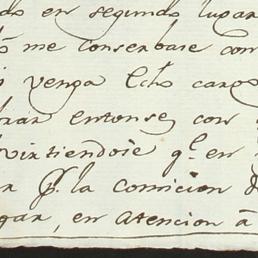 do en segundo lugar
me conserbase com
venga dcho cargo
brar entonses con
dvirtiendose q.e en
r p.r la comicion d
gar, en atencion à